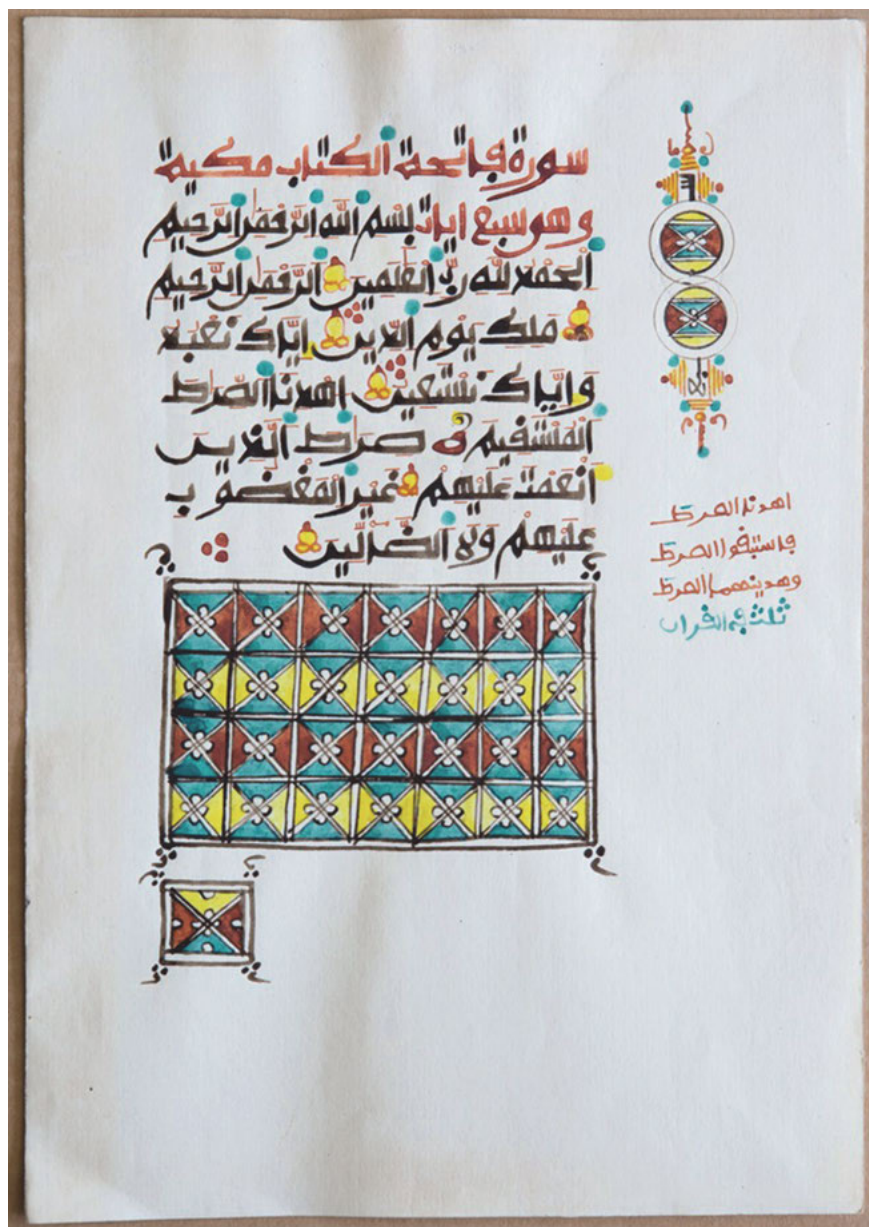 سورة فاتحة الكتاب مكية
وهو سبع ايات بِسْمِ اللَّهِ الرَّحْمَٰنِ الرَّحِيمِ
الْحَمْدُ لِلَّهِ رَبِّ الْعَٰلَمِينَ الرَّحْمَٰنِ الرَّحِيمِ
مَلِكِ يَوْمِ الدِّينِ إِيَّاكَ نَعْبُدُ
وَإِيَّاكَ نَسْتَعِينُ اهْدِنَا الصِّرَٰطَ
الْمُسْتَقِيمَ صِرَٰطَ الَّذِينَ
أَنْعَمْتَ عَلَيْهِمْ غَيْرِ الْمَغْضُوبِ
عَلَيْهِمْ وَلَا الضَّالِّينَ
اهدنا الصرط
فاستبقوا الصرط
وهدينهما الصرط
ثلث في القران